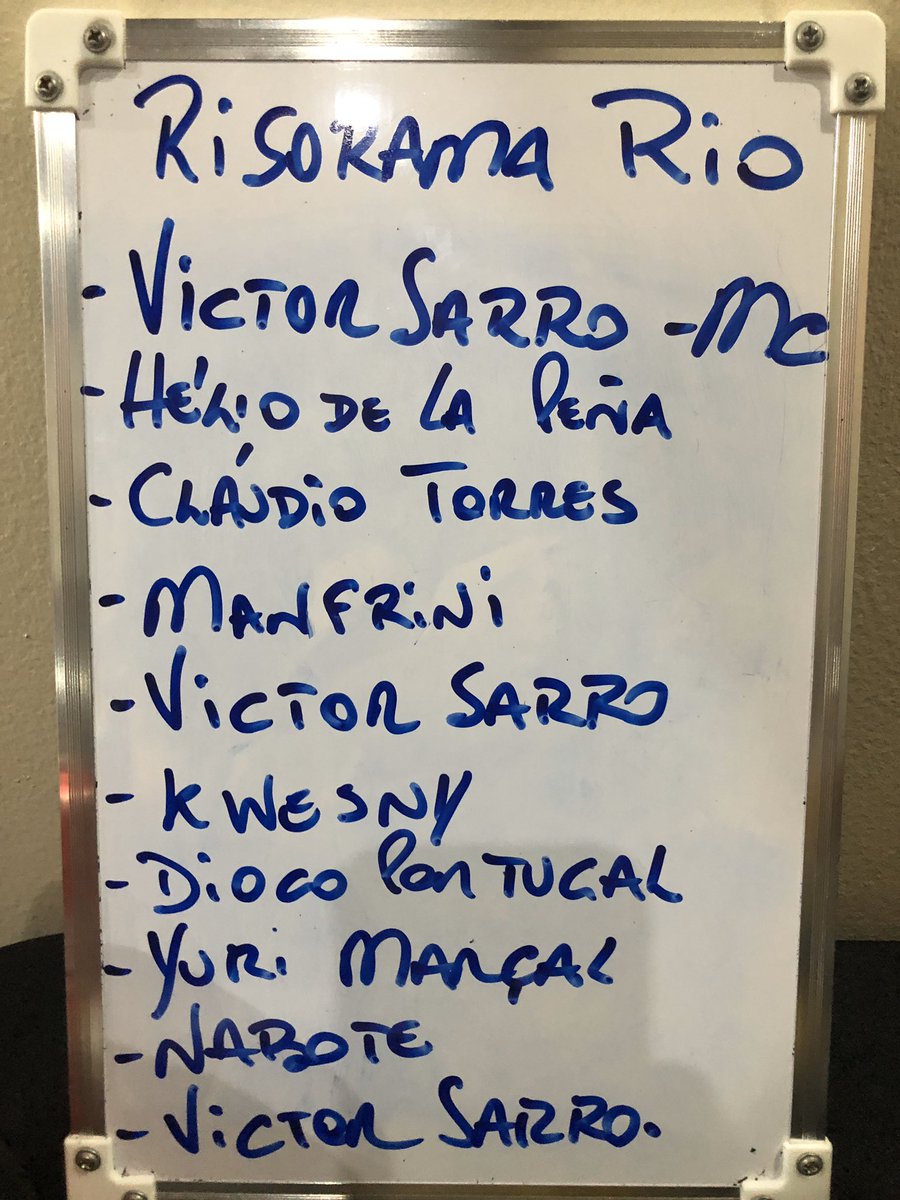 RISORAMA RIO
- VICTOR SARRO - MC
- HÉLIO DE LA PEÑA
- CLÁUDIO TORRES
- MANFRINI
- VICTOR SARRO
- KWESNY
- DIOGO PORTUGAL
- YURI MARÇAL
- NABOTE
- VICTOR SARRO.